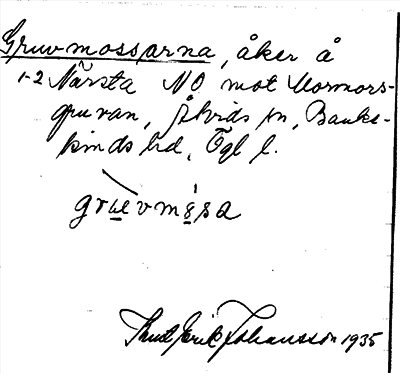 Gruvmossarna, åker å
1-2 Närsta NO mot Mormors-
gruvan, Åtvids sn, Banke-
kinds hd, Ögl l.
grʉvmosa
Knut Erik Johansson 1935